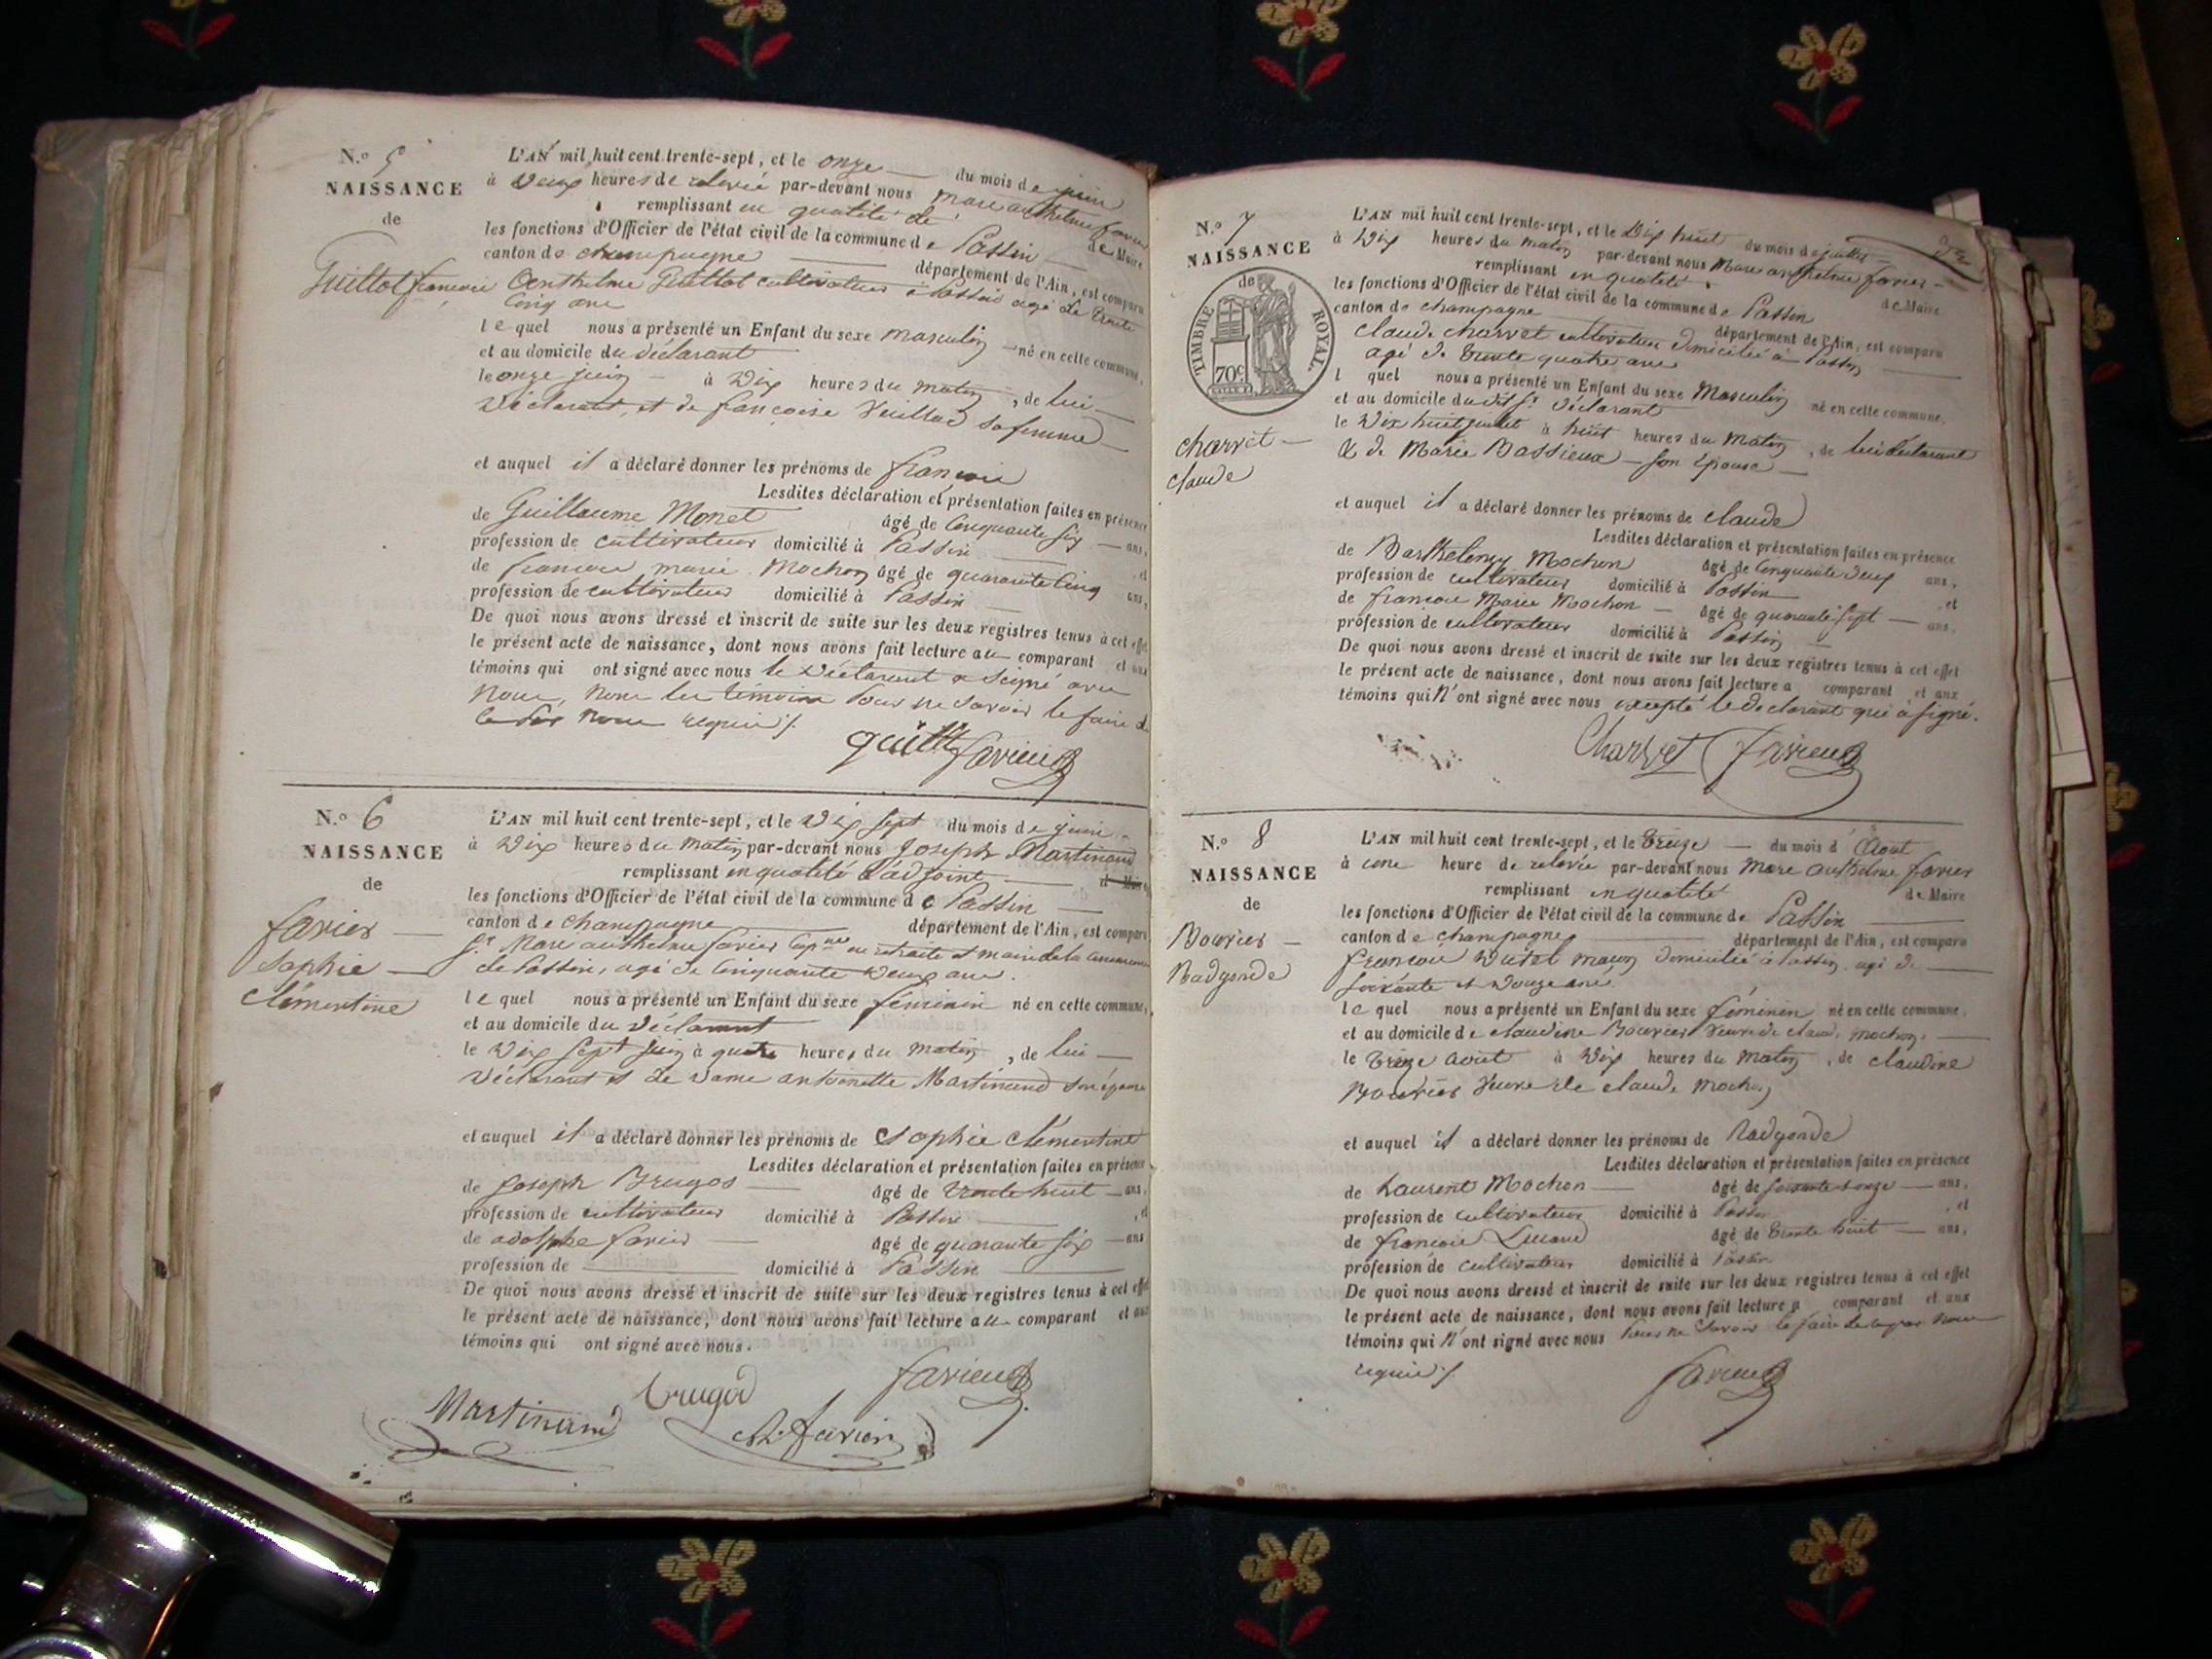 N.o 5
NAISSANCE
de
Guillot françois
L'AN mil huit cent trente-sept, et le onze du mois de juin
à Deux heures de relevée par-devant nous marc anthelme favier
remplissant en qualité de de Maire
les fonctions d'Officier de l'état civil de la commune de Passin
canton de champagne département de l'Ain, est comparu
Anthelme Guillot cultivateur à Passin agé de trente
Cinq ans
lequel nous a présenté un Enfant du sexe masculin né en cette commune,
et au domicile du déclarant
le onze juin à Dix heures du matin, de lui
Déclarant, et de françoise sa femme
et auquel il a déclaré donner les prénoms de françois
Lesdites déclaration et présentation faites en présence
de Guillaume Monet âgé de Cinquante six ans,
profession de cultivateur domicilié à Passin
de françois marie Mochon âgé de quarante Cinq ans,
profession de cultivateur domicilié à Passin
De quoi nous avons dressé et inscrit de suite sur les deux registres tenus à cet effet
le présent acte de naissance, dont nous avons fait lecture au comparant et aux
témoins qui ont signé avec nous le Déclarant a signé avec
nous, non les témoins pour ne savoir le faire de
ce par nous requis /.
guillt favier
N.o 6
NAISSANCE
de
favier
Sophie
Clémentine
L'AN mil huit cent trente-sept, et le Dix sept du mois de juin
à Dix heures du matin par-devant nous Joseph Martinand
remplissant en qualité d'adjoint de Maire
les fonctions d'Officier de l'état civil de la commune de Passin
canton de champagne département de l'Ain, est comparu
Sr. Marc anthelme favier Capne en retraite et maire de la commune
de Passin, agé de Cinquante Deux ans.
lequel nous a présenté un Enfant du sexe féminin né en cette commune,
et au domicile du déclarant
le Dix sept juin à quatre heures du matin, de lui
Déclarant et de Dame antoinette Martinand son épouse
et auquel il a déclaré donner les prénoms de Sophie Clémentine
Lesdites déclaration et présentation faites en présence
de Joseph Brugod âgé de trente huit ans,
profession de cultivateur domicilié à Passin, et
de adolphe favier âgé de quarante six ans
profession de domicilié à Passin
De quoi nous avons dressé et inscrit de suite sur les deux registres tenus à cet effet
le présent acte de naissance, dont nous avons fait lecture au comparant et aux
témoins qui ont signé avec nous.
Martinand brugod favier
favier
N.o 7
NAISSANCE
de
TIMBRE ROYAL.
70c.
charvet
claude
L'AN mil huit cent trente-sept, et le Dix huit du mois de juillet
à Dix heures du matin par-devant nous Marc anthelme favier
remplissant en qualité de Maire
les fonctions d'Officier de l'état civil de la commune de Passin
canton de champagne département de l'Ain, est comparu
Claude charvet cultivateur domicilié à Passin
agé de trente quatre ans
l quel nous a présenté un Enfant du sexe Masculin né en cette commune.
et au domicile du dit Sr. déclarant
le Dix huit juillet à huit heures du matin, de lui déclarant
& de Marie Bassieux son épouse
et auquel il a déclaré donner les prénoms de claude
Lesdites déclaration et présentation faites en présence
de Barthelemy Mochon âgé de Cinquante deux ans,
profession de cultivateur domicilié à Passin, et
de françois Marie Mochon âgé de quarante sept ans,
profession de cultivateur domicilié à Passin
De quoi nous avons dressé et inscrit de suite sur les deux registres tenus à cet effet
le présent acte de naissance, dont nous avons fait lecture a comparant et aux
témoins qui N'ont signé avec nous excepté le declarant qui a signé.
Charvet favier
N.o 8
NAISSANCE
de
Bouvier
Radgonde
L'AN mil huit cent trente-sept, et le treize du mois d'Aout
à une heure de relevée par-devant nous Marc anthelme favier
remplissant en qualité de Maire
les fonctions d'Officier de l'état civil de la commune de Passin
canton de champagne département de l'Ain, est comparu
françois maçon domicilié à Passin agé de
soixante et Douze ans
lequel nous a présenté un Enfant du sexe féminin né en cette commune,
et au domicile de claudine Bouvier Veuve de Claude mochon
le treize aout à Dix heures du matin, de claudine
Bouvier Veuve de claude mochon
et auquel il a déclaré donner les prénoms de Radgonde
Lesdites déclaration et présentation faites en présence
de Laurent Mochon âgé de soixante onze ans,
profession de cultivateur domicilié à Passin, et
de françois âgé de trente huit ans,
profession de cultivateur domicilié à Passin
De quoi nous avons dressé et inscrit de suite sur les deux registres tenus à cet effet
le présent acte de naissance, dont nous avons fait lecture a comparant et aux
témoins qui N'ont signé avec nous pour ne savoir le faire de ce par nous
requis /.
favier